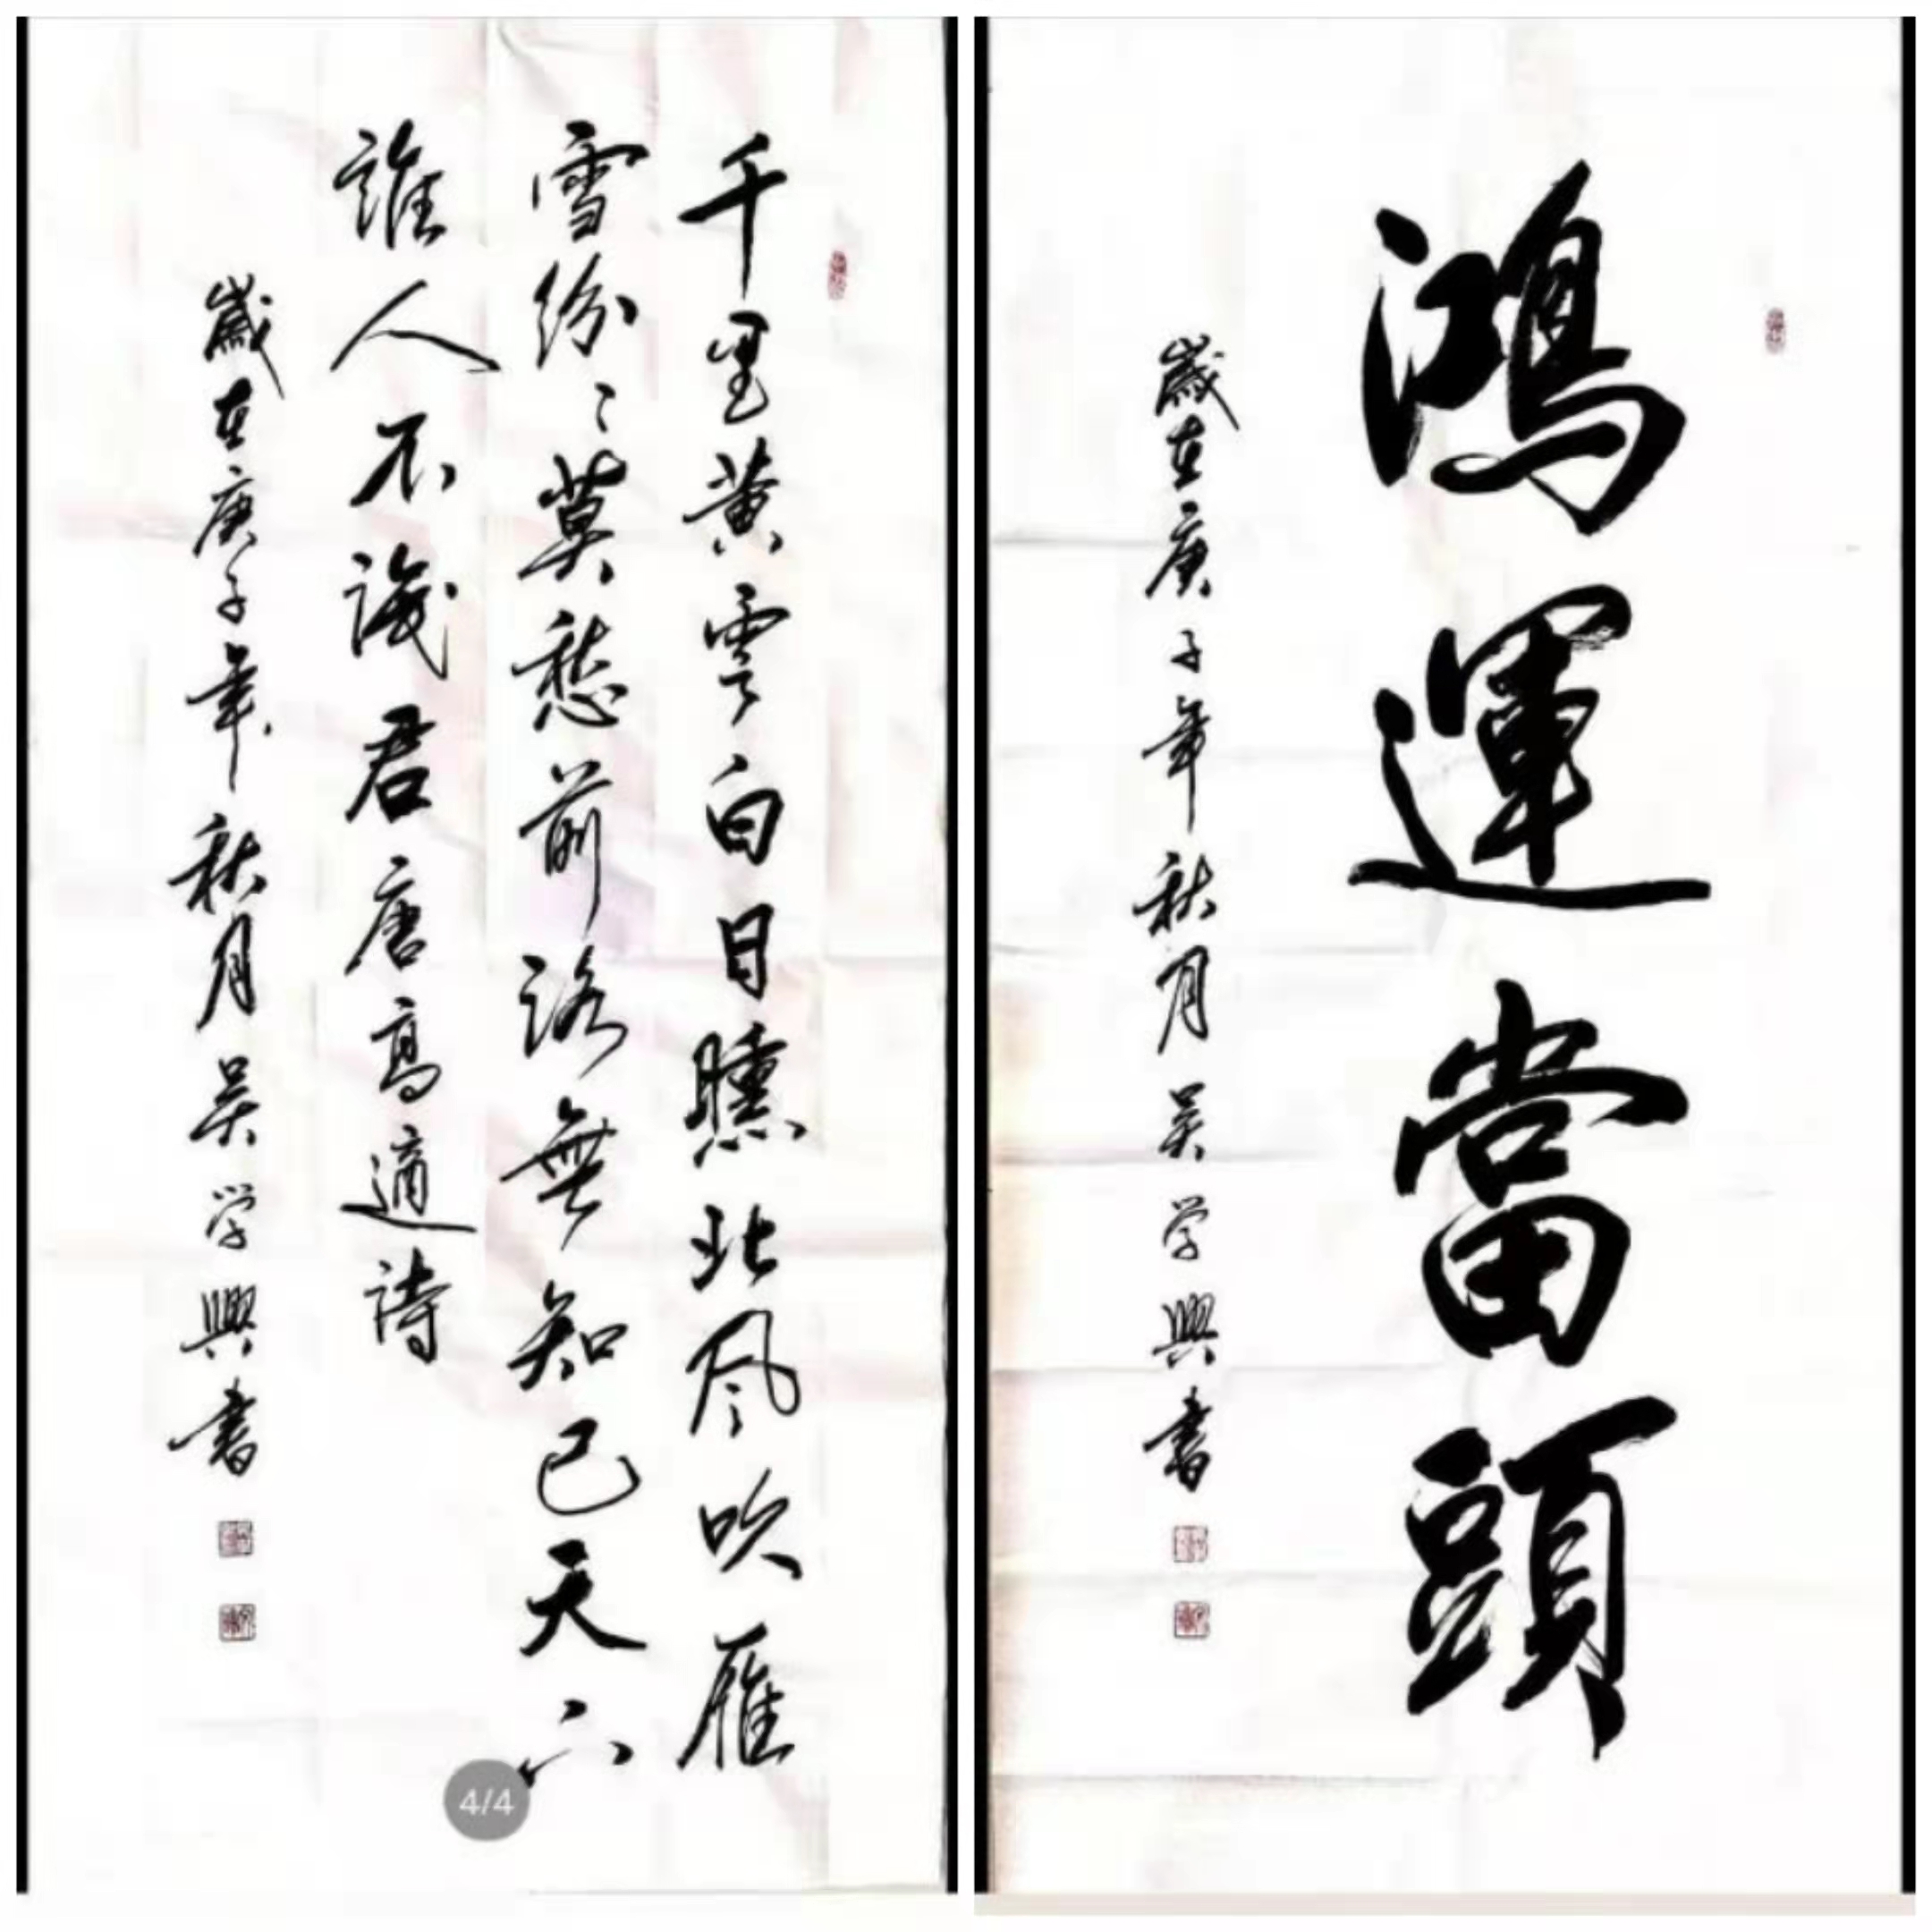 千里黄雲白日曛北风吹雁
雪纷〻莫愁前路無知己天下
誰人不識君唐高適詩
歲在庚子年秋月吴学興書
4/4
鴻運當頭
歲在庚子年秋月吴学興書